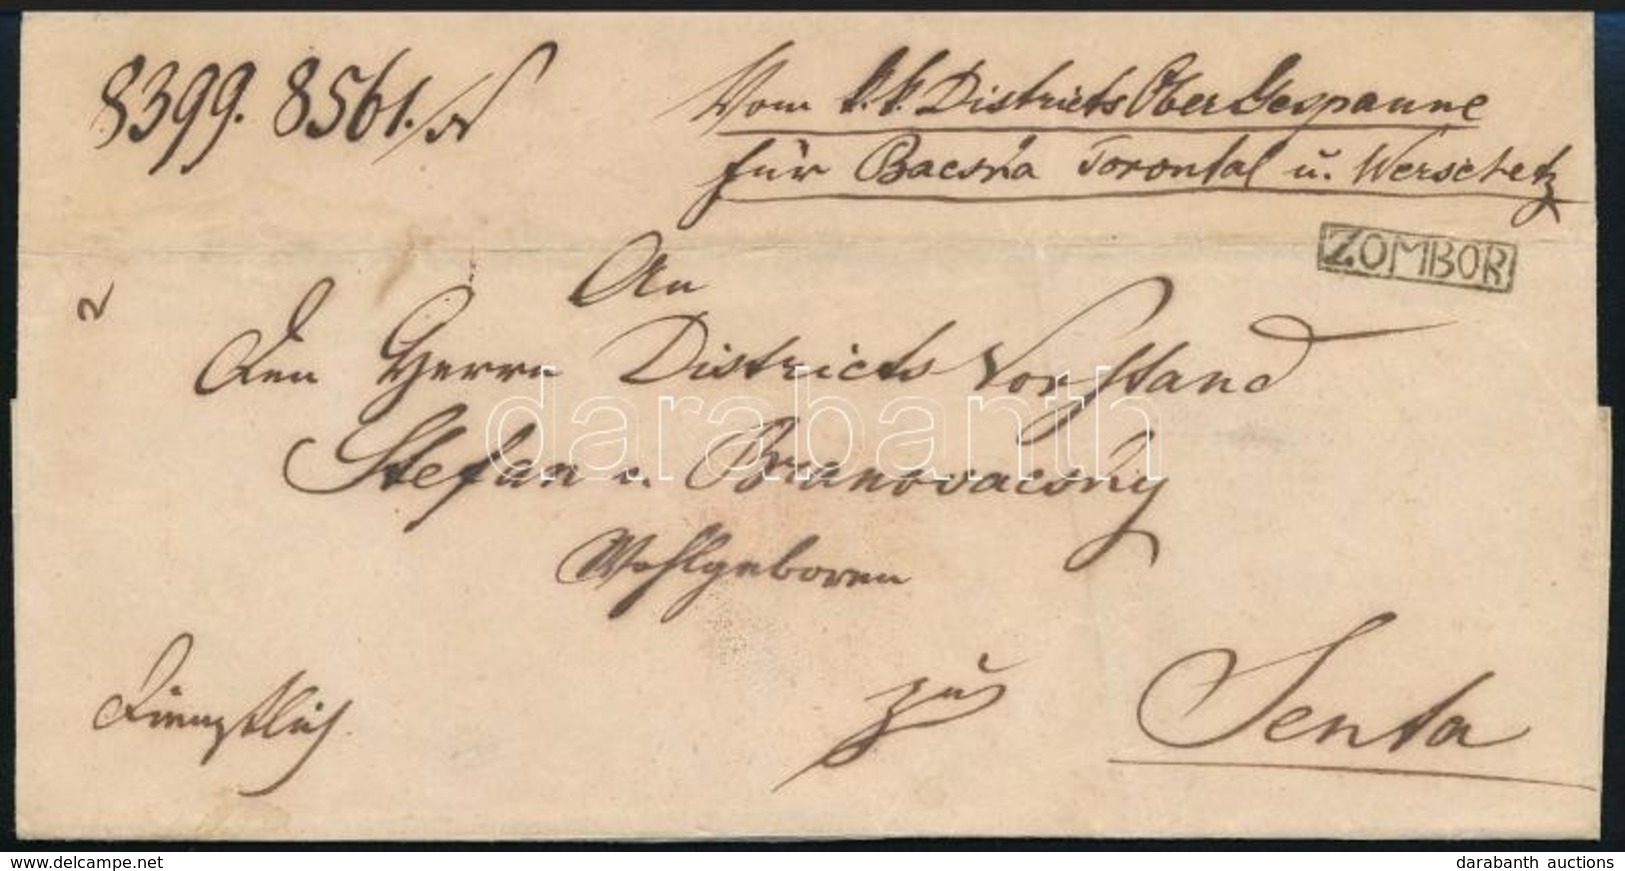 8399. 8561./
Vom k.k. Districts Ober Gespanne
für Bacska Torontal u. Werschetz
ZOMBOR
An
2
Den Herrn Districts Vorstand
Stefan v. Branovacsky
Wohlgeboren
Dienstlich.
zu
Senta
darabanth
www.delcampe.net
darabanth auctions